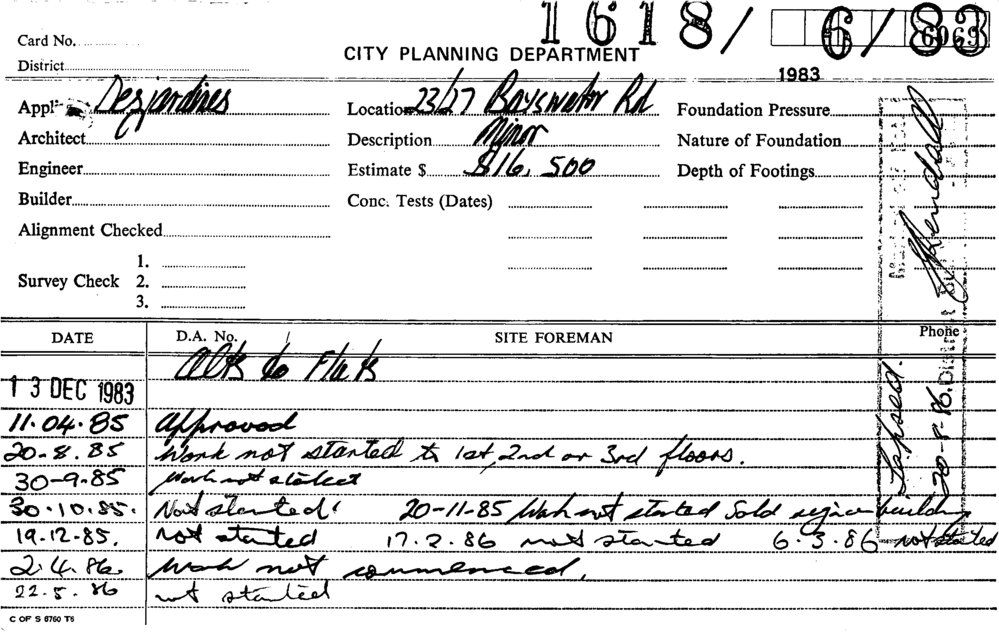 1618/ 6/83
6069
Card No.
CITY PLANNING DEPARTMENT
District
1983
Desjardines
Location 23/27 Bayswater Rd
Foundation Pressure
Architect
Description Minor
Nature of Foundation
Engineer
Estimate $ $16,500
Depth of Footings
Builder
Conc. Tests (Dates)
Alignment Checked
Survey Check
1.
2.
3.
DATE
D.A. No.
SITE FOREMAN
Phone
Alts to Flats
13 DEC 1983
11.04.85 Approved
20-8.85 Work not started to 1st, 2nd or 3rd floors.
30-9-85 Work not started
30.10.85. Not started 20-11-85 Work not started Sold building
19.12-85. not started 17.2.86 not started 6.3.86 not started
2.4.86. Work not commenced.
22.5.86 not started
C OF S 6760 T5
Lapsed. 20-8-86.